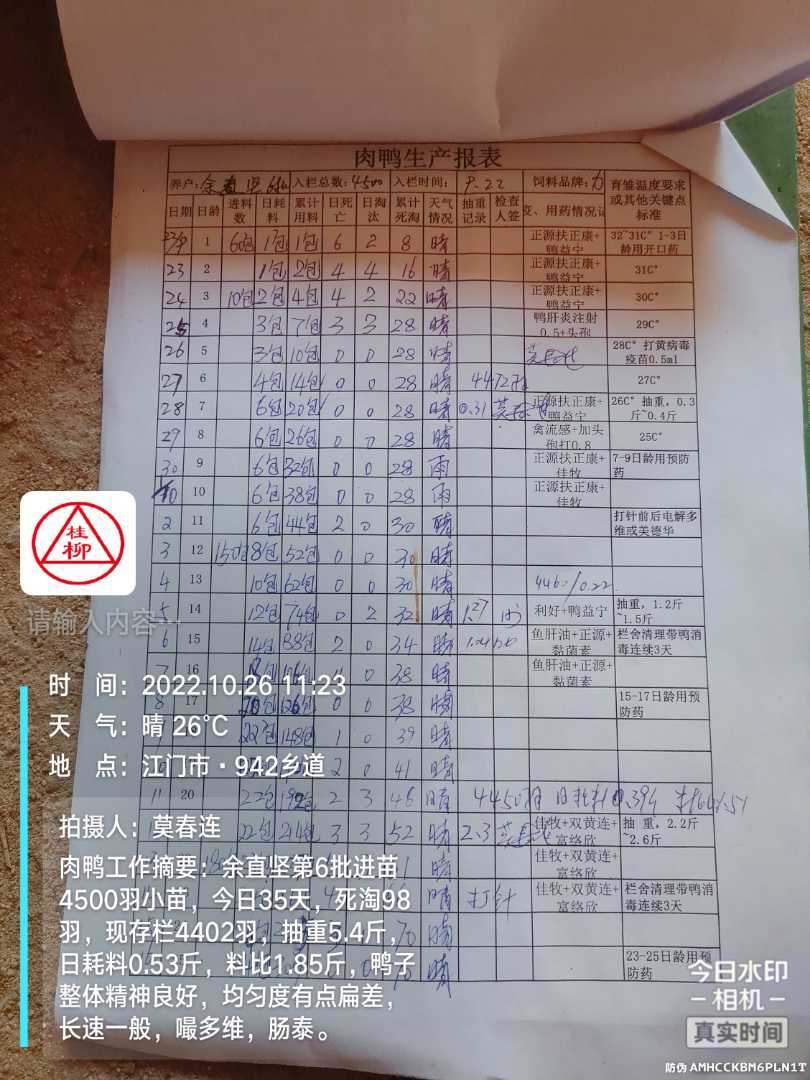 肉鸭生产报表
养户: 余直坚 入栏总数: 4500 入栏时间: 9.22 饲料品牌:
日期 日龄 进料数 日耗料 累计用料 日死亡 日淘汰 累计死淘 天气情况 抽重记录 检查人签 疫、用药情况记 育雏温度要求或其他关键点标准
1 60包 1包 1包 6 2 8 晴 正源扶正康+鸭益宁 32~31C° 1-3日龄用开口药
23 2 1包 2包 4 4 16 晴 正源扶正康+鸭益宁 31C°
24 3 10包 2包 4包 4 2 22 晴 正源扶正康+鸭益宁 30C°
25 4 3包 7包 3 3 28 晴 鸭肝炎注射0.5+头孢 29C°
26 5 3包 10包 0 0 28 晴 28C° 打黄病毒疫苗0.5ml
27 6 4包 14包 0 0 28 晴 4472 27C°
28 7 6包 20包 0 0 28 晴 0.31 正源扶正康+鸭益宁 26C° 抽重,0.3~0.4斤
29 8 6包 26包 0 0 28 晴 禽流感+加头孢打0.8 25C°
30 9 6包 32包 0 0 28 雨 正源扶正康+佳牧 7-9日龄用预防药
10 6包 38包 0 0 28 雨 正源扶正康+佳牧
2 11 6包 44包 2 0 30 晴 打针前后电解多维或美德华
3 12 150包 8包 52包 0 0 30 晴
4 13 10包 62包 0 0 30 晴 0.22
5 14 12包 74包 0 2 32 晴 1.27 利好+鸭益宁 抽重,1.2斤~1.5斤
6 15 14包 88包 2 0 34 晴 鱼肝油+正源+黏菌素 栏舍清理带鸭消毒连续3天
7 16 0 38 晴 鱼肝油+正源+黏菌素
8 17 20包 126包 0 0 38 晴 15-17日龄用预防药
22包 148包 1 0 39 晴
2 0 41 晴
11 20 22包 192包 2 3 46 晴 4450
22包 214包 3 3 52 晴 2.3 佳牧+双黄连+富络欣 抽 重,2.2斤~2.6斤
晴 佳牧+双黄连+富络欣
晴 打针 佳牧+双黄连+富络欣 栏舍清理带鸭消毒连续3天
70 晴
晴 23-25日龄用预防药
桂柳
请输入内容…
时 间: 2022.10.26 11:23
天 气: 晴 26℃
地 点: 江门市·942乡道
拍摄人: 莫春连
肉鸭工作摘要: 余直坚第6批进苗
4500羽小苗,今日35天,死淘98
羽,现存栏4402羽,抽重5.4斤,
日耗料0.53斤,料比1.85斤,鸭子
整体精神良好,均匀度有点扁差,
长速一般,嘬多维,肠泰。
今日水印
-相机-
真实时间
防伪 AMHCCKBM6PLN1T